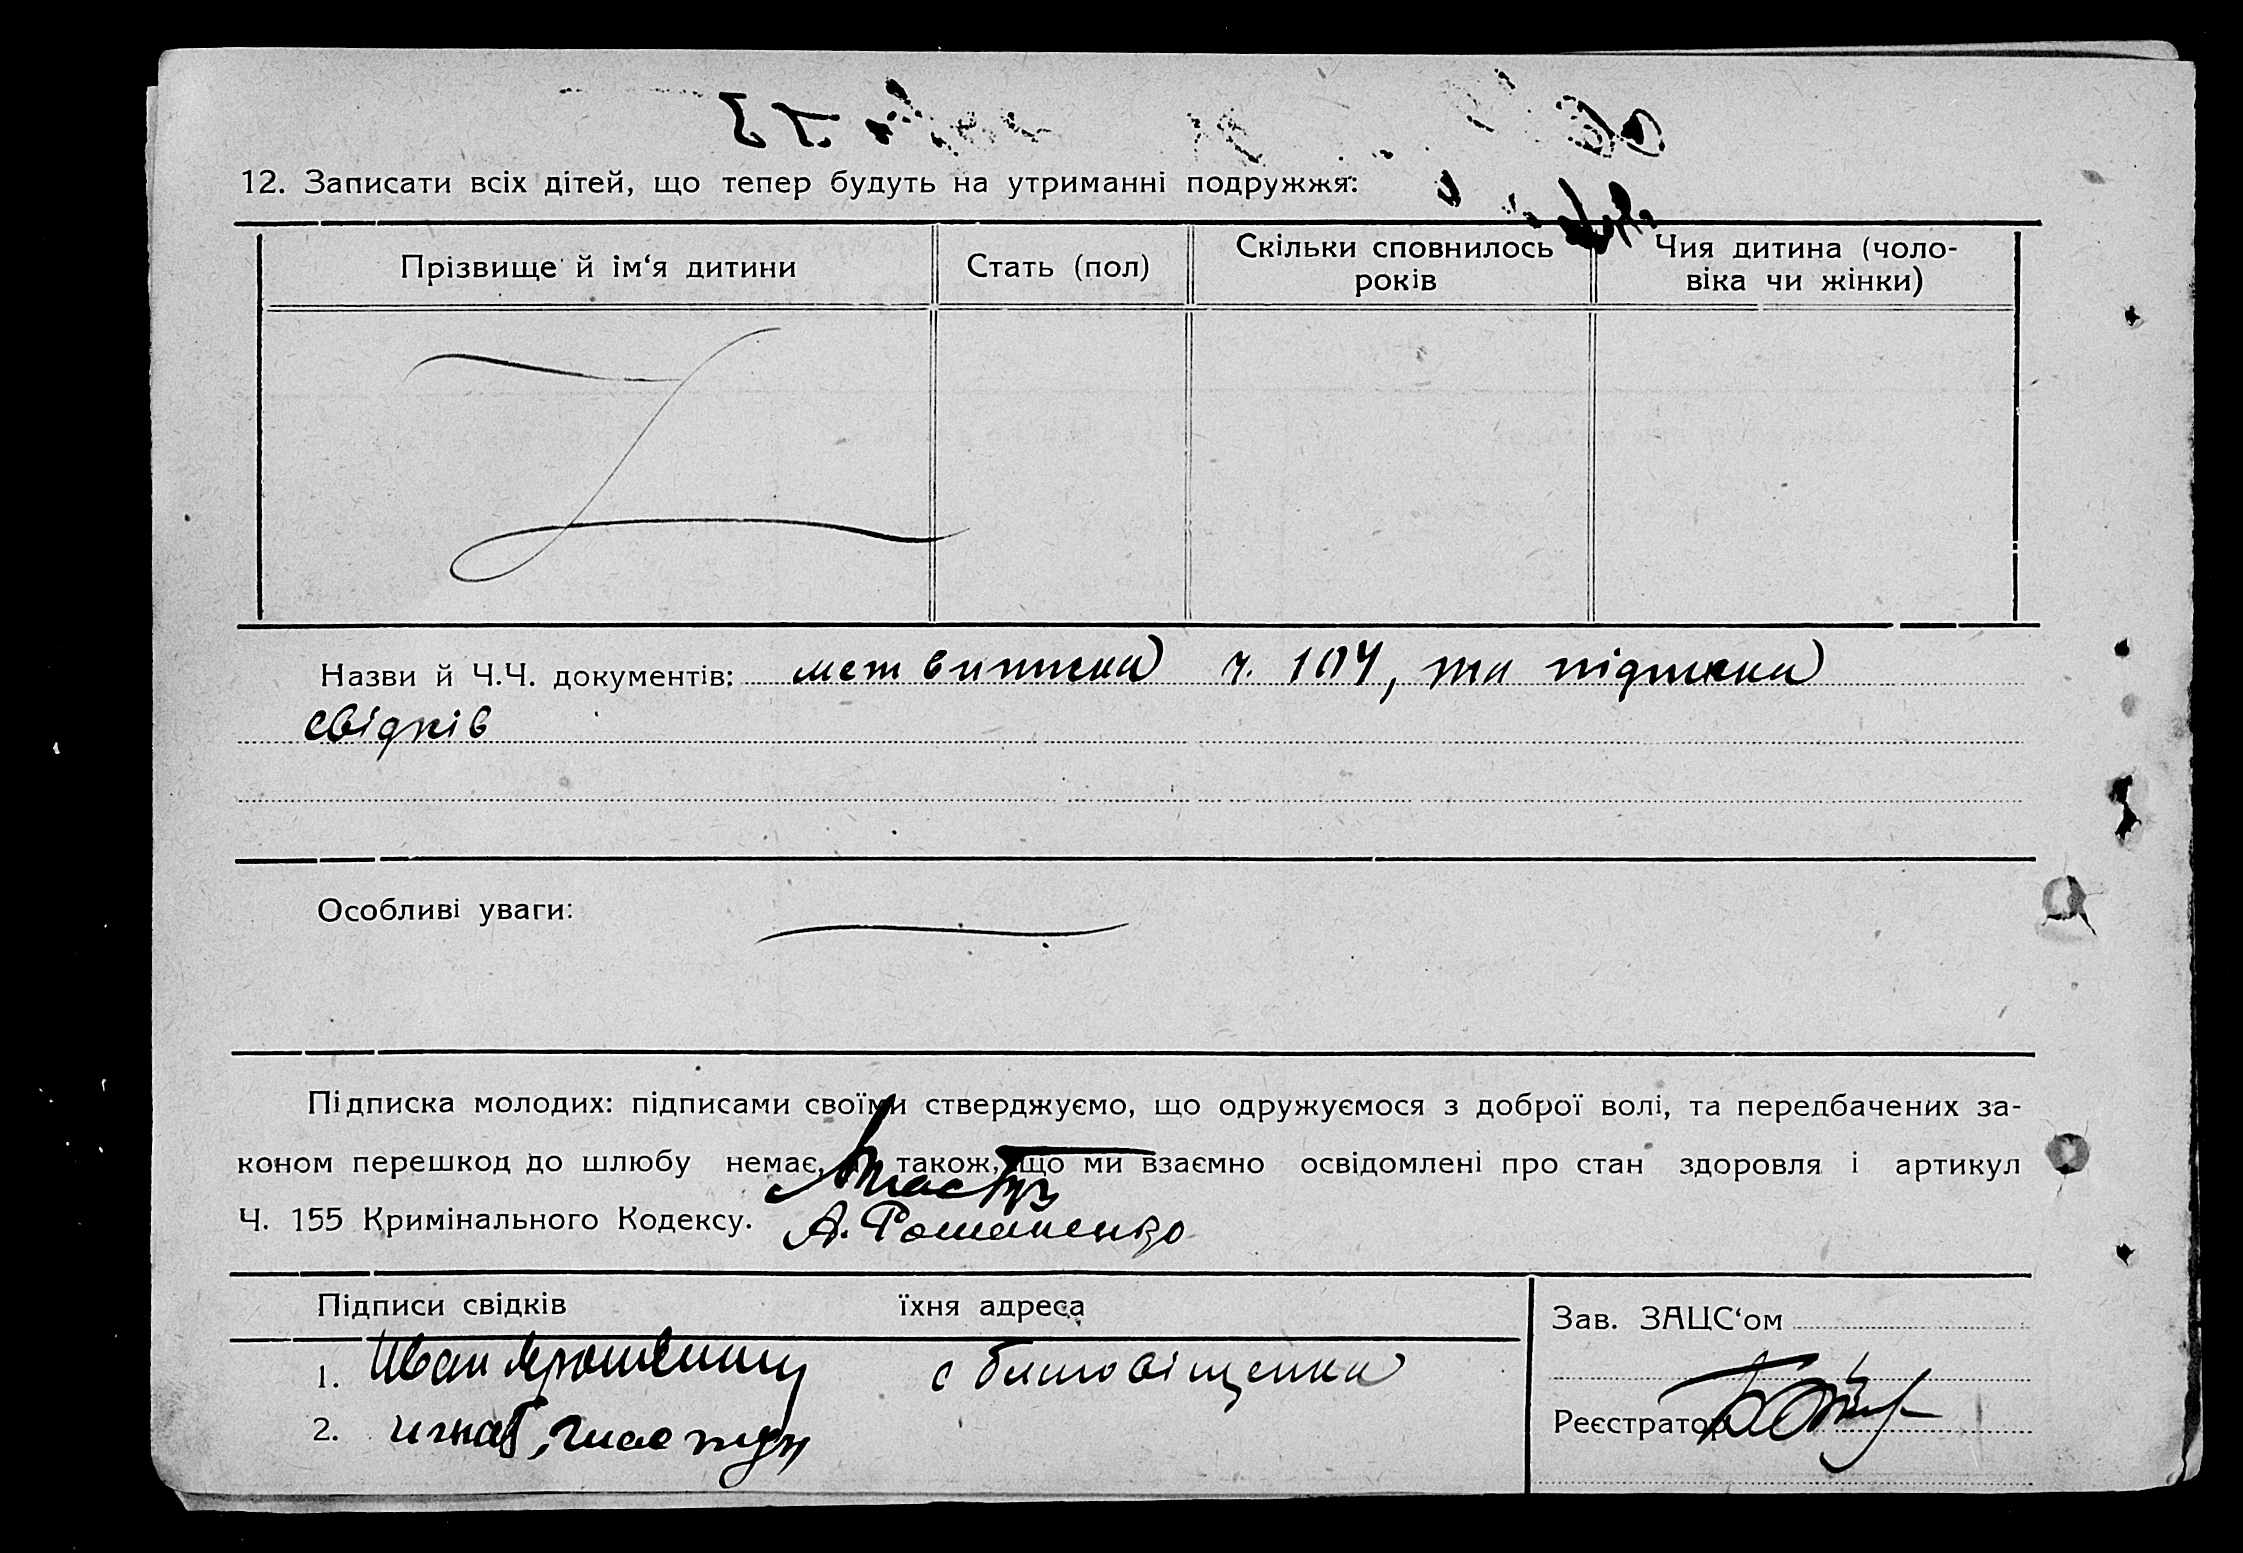 12. Записати всіх дітей, що тепер будуть на утриманні подружжя:
Прізвище й ім‘я дитини
Стать (пол)
Скільки сповнилось
років
Чия дитина (чоло-
віка чи жінки)
Назви й Ч.Ч. документів: мет виписка ч. 104, та підписка
свідків
Особливі уваги:
Підписка молодих: підписами своїми стверджуємо, що одружуємося з доброї волі, та передбачених за-
коном перешкод до шлюбу немає, також, що ми взаємно освідомлені про стан здоровля і артикул
Ч. 155 Кримінального Кодексу.
А. Романенко
Підписи свідків їхня адреса
1. Иван с Благовіщенка
2. Игнат
Зав. ЗАЦС‘ом
Реєстратор